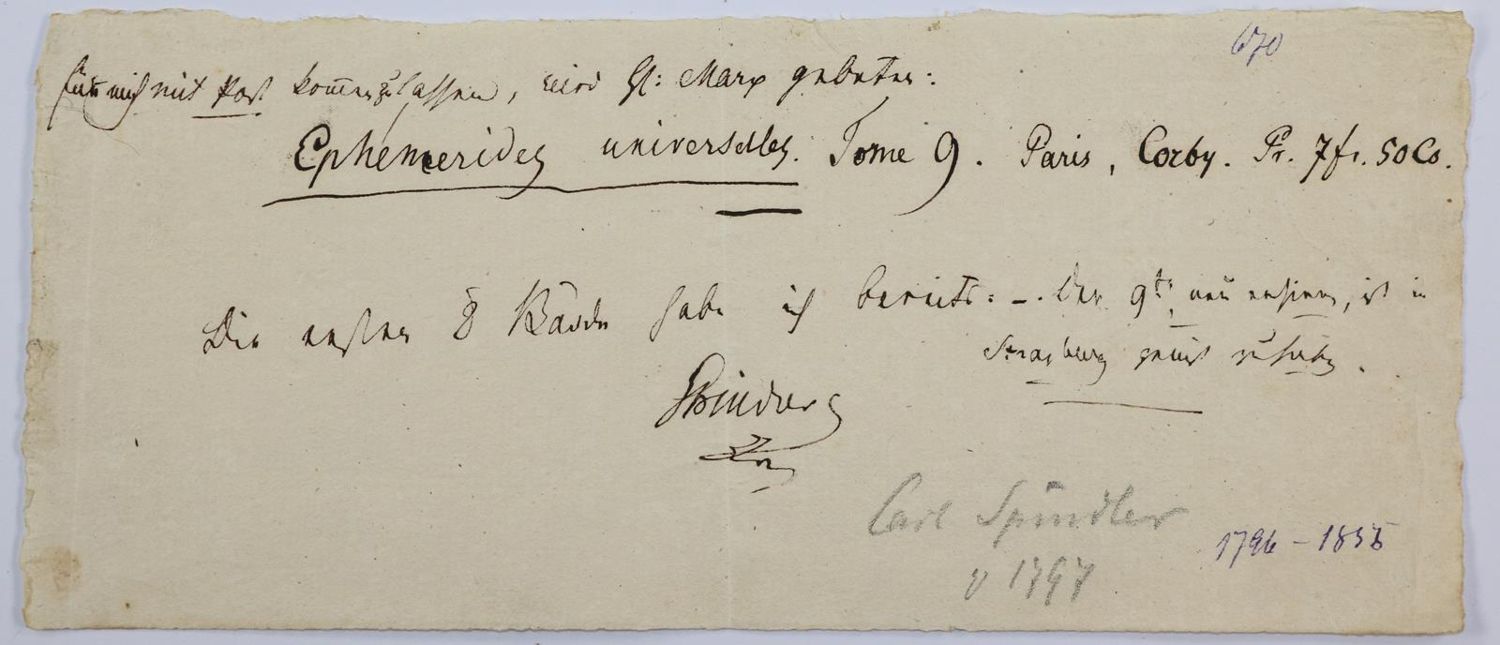 670
für mich mit Post kommen zu lassen, wird H: Marx gebeten:
Ephemerides universelles. Tome 9. Paris, Corby. Pr. 7 fr. 50 Co.
Die ersten 8 Bände habe ich bereits: –. Der 9te, neu ersienen, ist in
Strasburg gewiß zu haben.
Spindler
Carl Spindler
1796 – 1855
v 1797